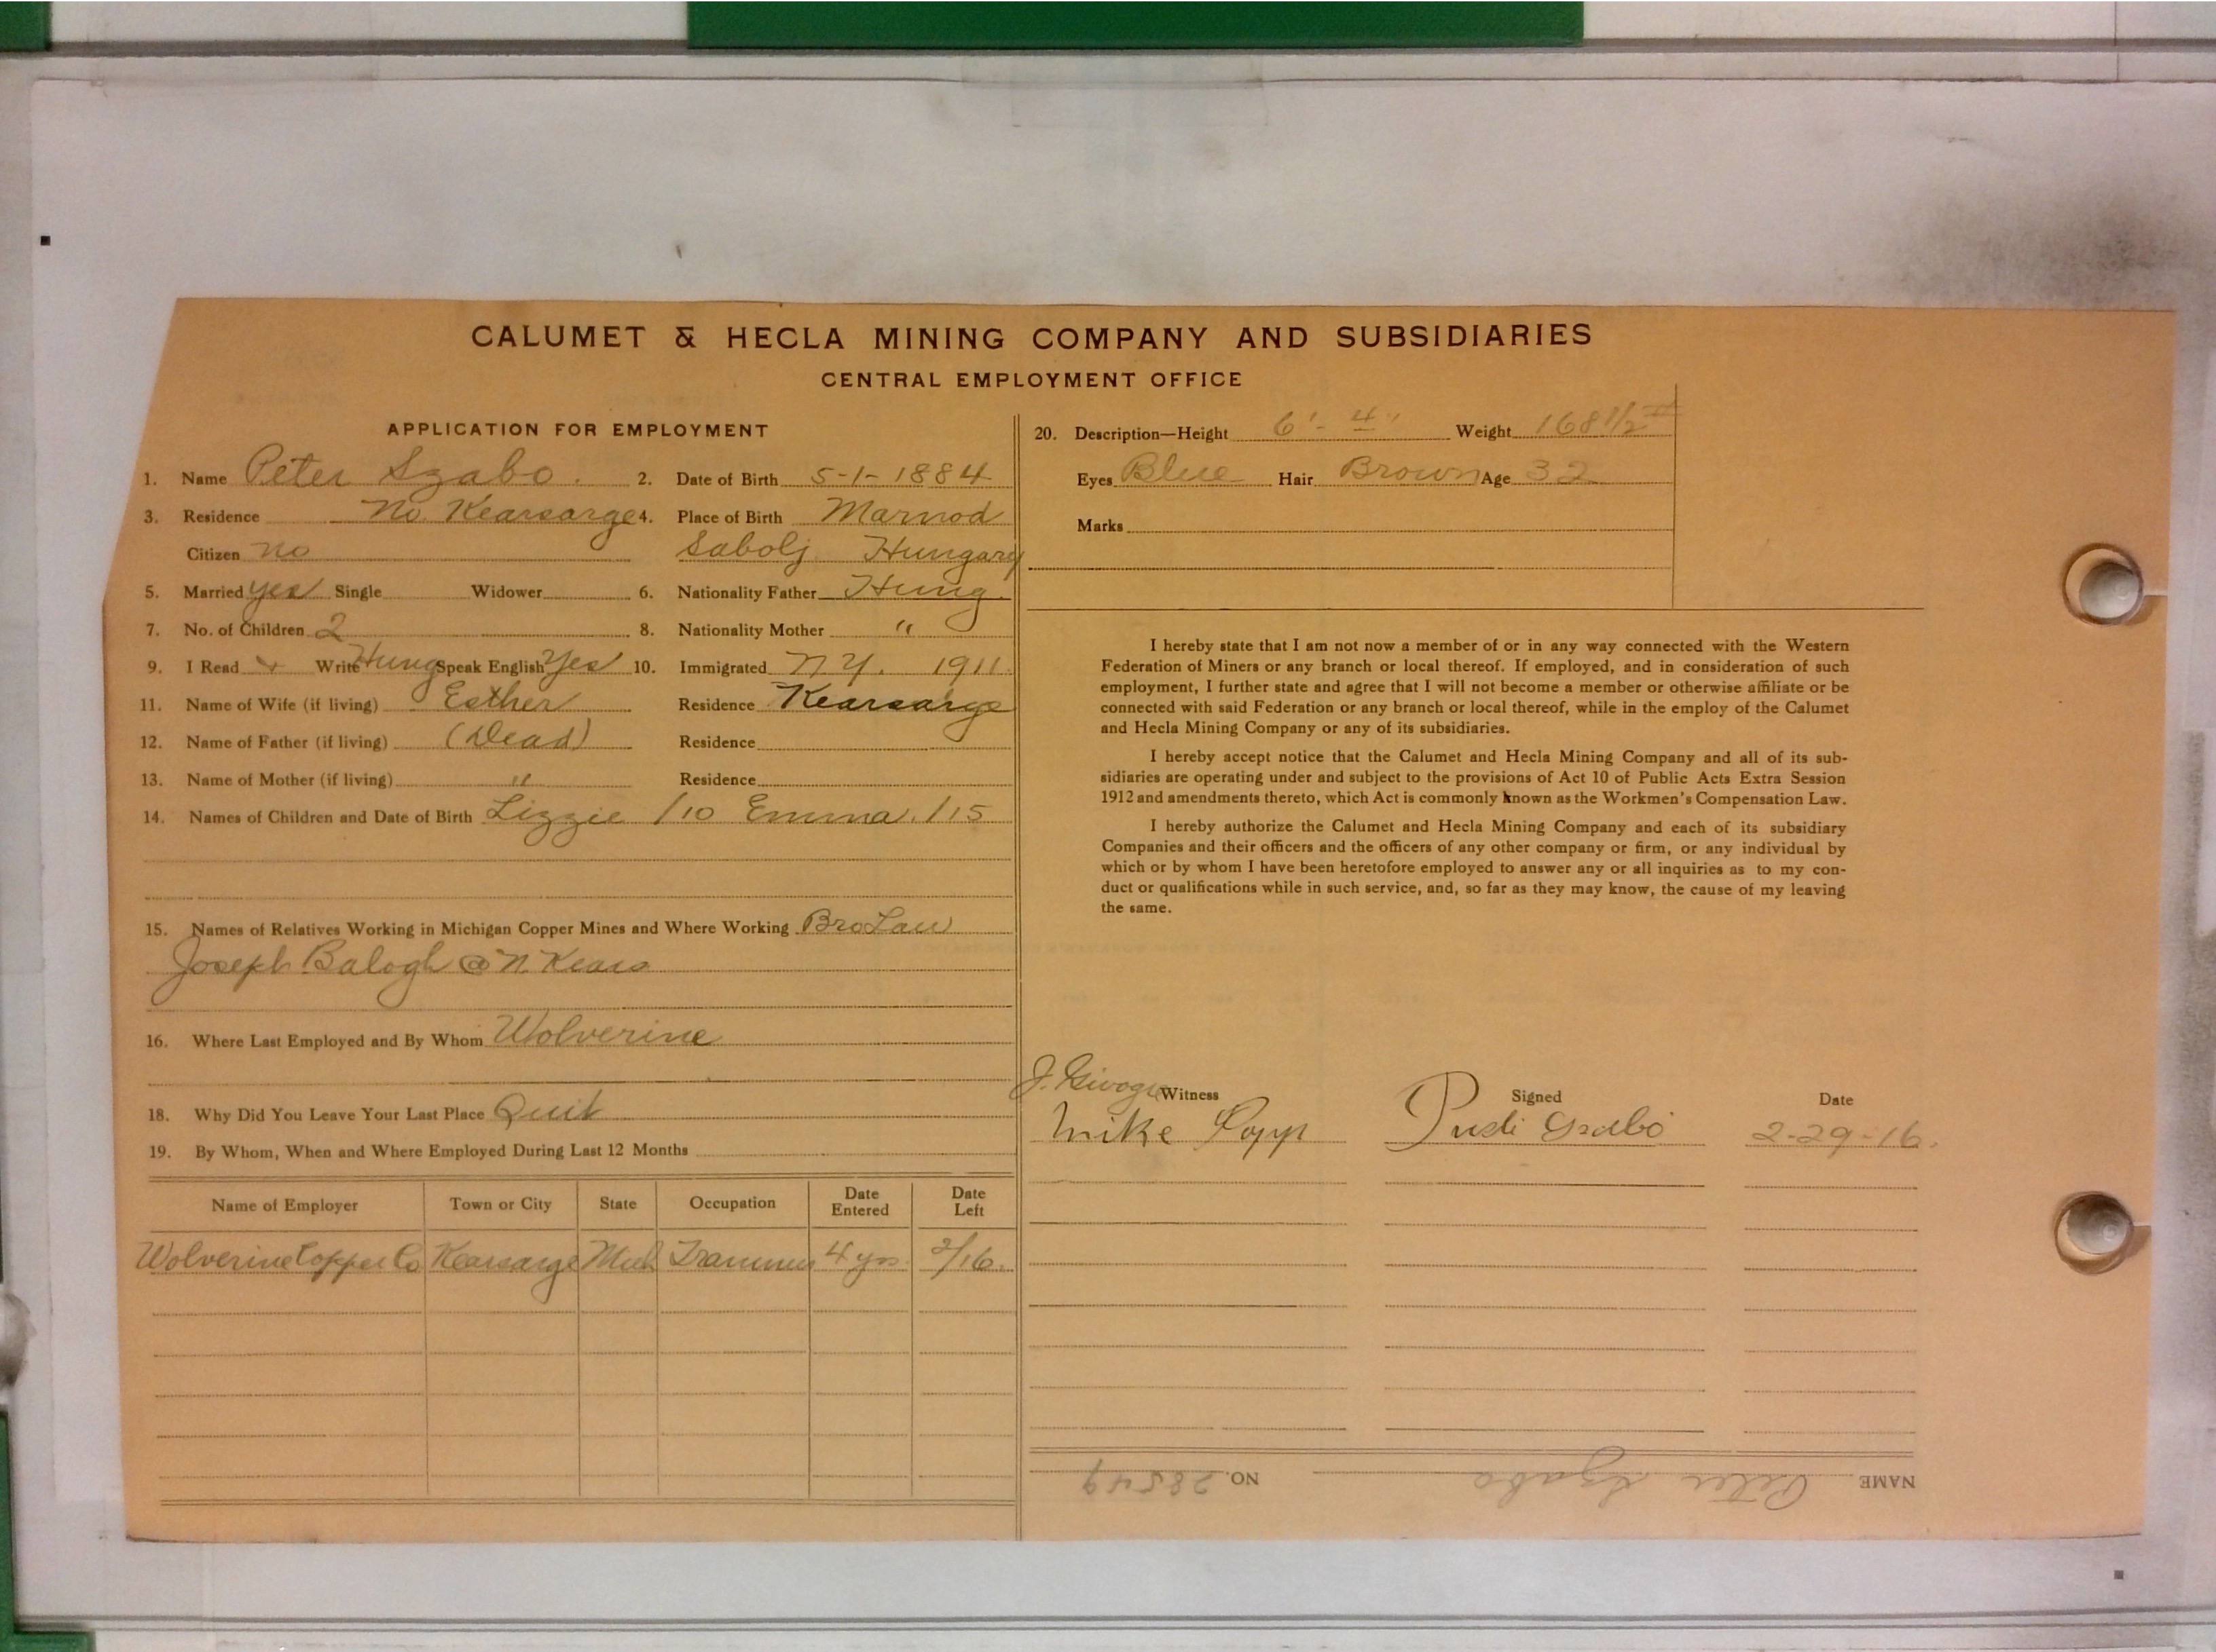 CALUMET & HECLA MINING COMPANY AND SUBSIDIARIES
CENTRAL EMPLOYMENT OFFICE
APPLICATION FOR EMPLOYMENT
1. Name Peter Szabo. 2. Date of Birth 5-1-1884
3. Residence No. Kearsarge 4. Place of Birth Marnod
Citizen no Sabolj Hungary
5. Married yes Single Widower 6. Nationality Father Hung.
7. No. of Children 2 8. Nationality Mother "
9. I Read + Write Hung Speak English Yes 10. Immigrated N Y. 1911.
11. Name of Wife (if living) Esther Residence Kearsarge
12. Name of Father (if living) (Dead) Residence
13. Name of Mother (if living) " Residence
14. Names of Children and Date of Birth Lizzie /10 Emma. /15
15. Names of Relatives Working in Michigan Copper Mines and Where Working Bro Law
Joseph Balogh @ N. Kears
16. Where Last Employed and By Whom Wolverine
18. Why Did You Leave Your Last Place Quit
19. By Whom, When and Where Employed During Last 12 Months
Name of Employer Town or City State Occupation Date Entered Date Left
Wolverine Copper Co Kearsarge Mich Trammer 4 yrs. 2/16.
20. Description—Height 6'-4" Weight 168 1/2 #
Eyes Blue Hair Brown Age 32
Marks
I hereby state that I am not now a member of or in any way connected with the Western
Federation of Miners or any branch or local thereof. If employed, and in consideration of such
employment, I further state and agree that I will not become a member or otherwise affiliate or be
connected with said Federation or any branch or local thereof, while in the employ of the Calumet
and Hecla Mining Company or any of its subsidiaries.
I hereby accept notice that the Calumet and Hecla Mining Company and all of its sub-
sidiaries are operating under and subject to the provisions of Act 10 of Public Acts Extra Session
1912 and amendments thereto, which Act is commonly known as the Workmen's Compensation Law.
I hereby authorize the Calumet and Hecla Mining Company and each of its subsidiary
Companies and their officers and the officers of any other company or firm, or any individual by
which or by whom I have been heretofore employed to answer any or all inquiries as to my con-
duct or qualifications while in such service, and, so far as they may know, the cause of my leaving
the same.
J. Witness Signed Date
Mike Popp 2-29-16.
NAME Peter Szabo NO. 28549